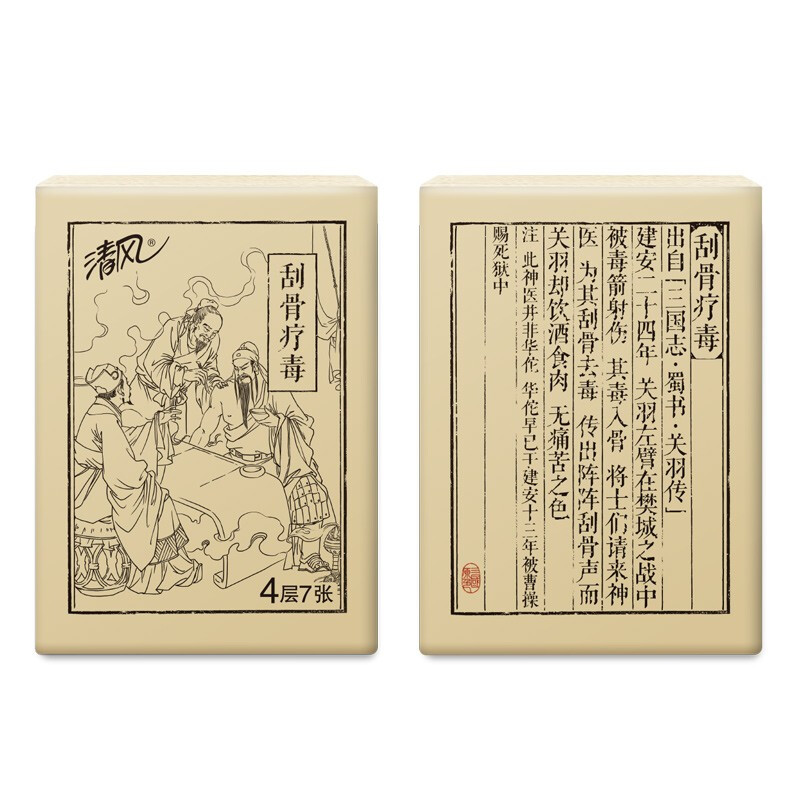 清风®
刮骨疗毒
4层7张
刮骨疗毒
出自「三国志·蜀书·关羽传」
建安二十四年 关羽左臂在樊城之战中
被毒箭射伤 其毒入骨 将士们请来神
医 为其刮骨去毒 传出阵阵刮骨声而
关羽却饮酒食肉 无痛苦之色
注 此神医并非华佗 华佗早已于建安十三年被曹操
赐死狱中